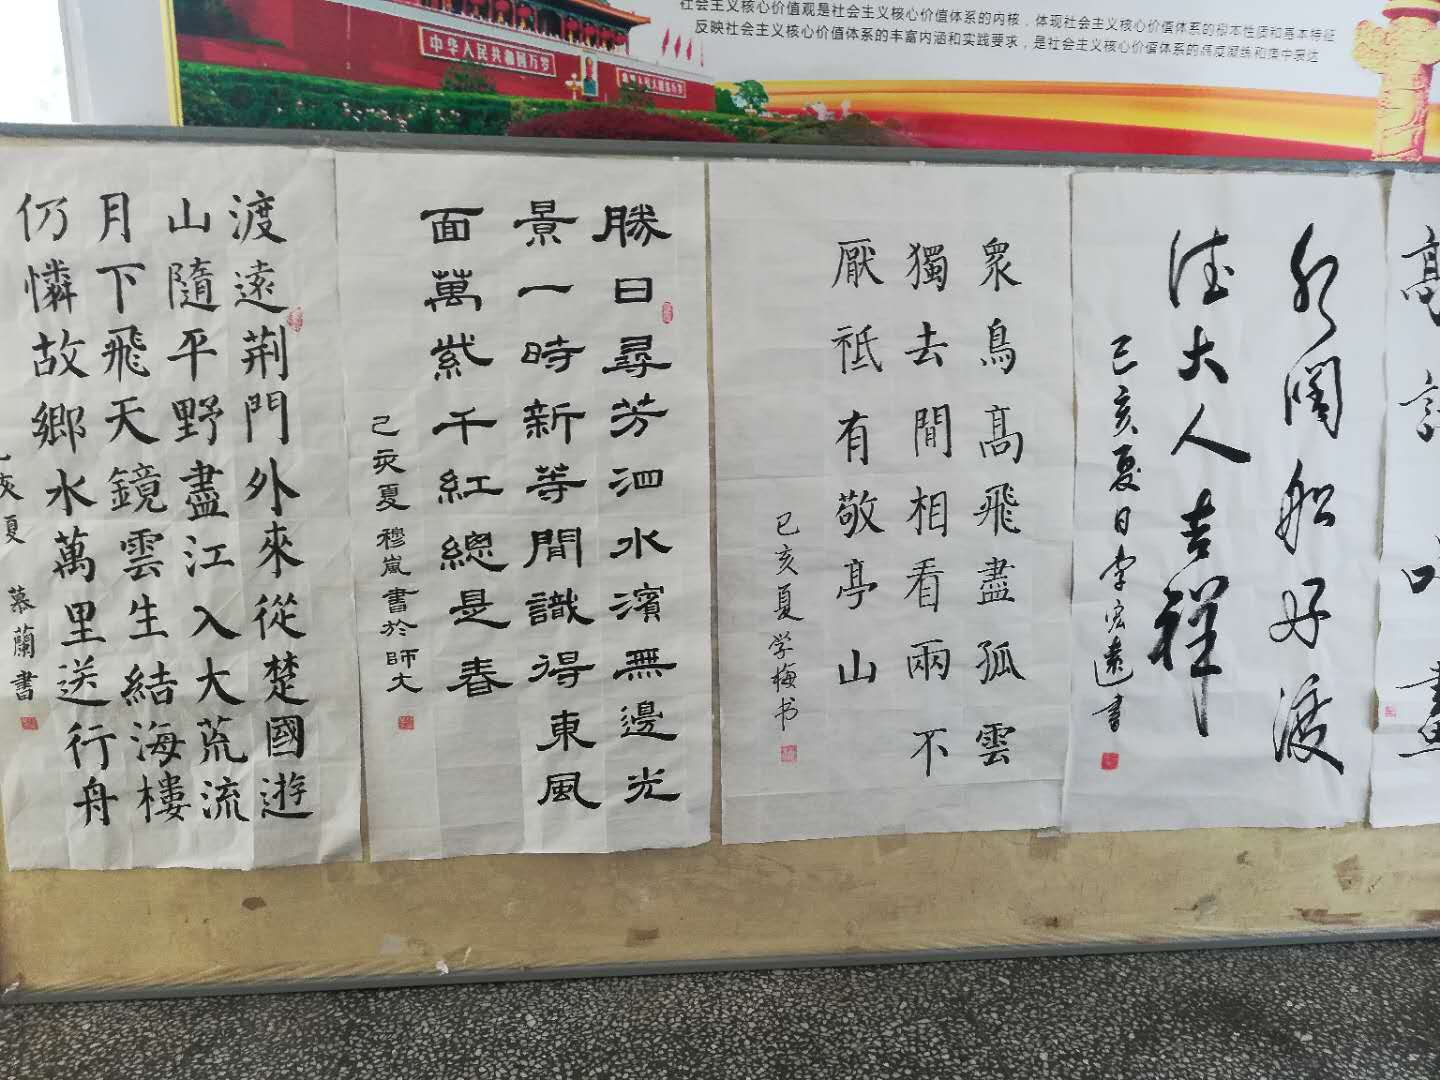 社会主义核心价值观是社会主义核心价值体系的内核，体现社会主义核心价值体系的根本性质和基本特征
反映社会主义核心价值体系的丰富内涵和实践要求，是社会主义核心价值体系的高度凝练和集中表达
中华人民共和国万岁
高
水阔船好渡
德大人吉祥
己亥夏日李宏远书
眾鳥高飛盡孤雲
獨去閒相看兩不
厭祗有敬亭山
己亥夏学梅书
勝日尋芳泗水濱無邊光
景一時新等閒識得東風
面萬紫千紅總是春
己亥夏穆嵐書於師大
渡遠荆門外來從楚國遊
山隨平野盡江入大荒流
月下飛天鏡雲生結海樓
仍憐故鄉水萬里送行舟
亥夏慕蘭書